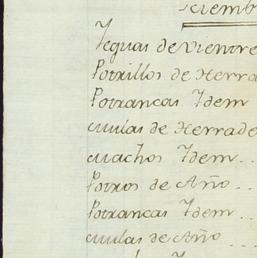 Yeguas de Vientre
Potrillos de Herra
Potrancas Ydem
mulas de Herrade
machos Ydem ..
Potros de Año ..
Potrancas Ydem ..
mulas de Año ..